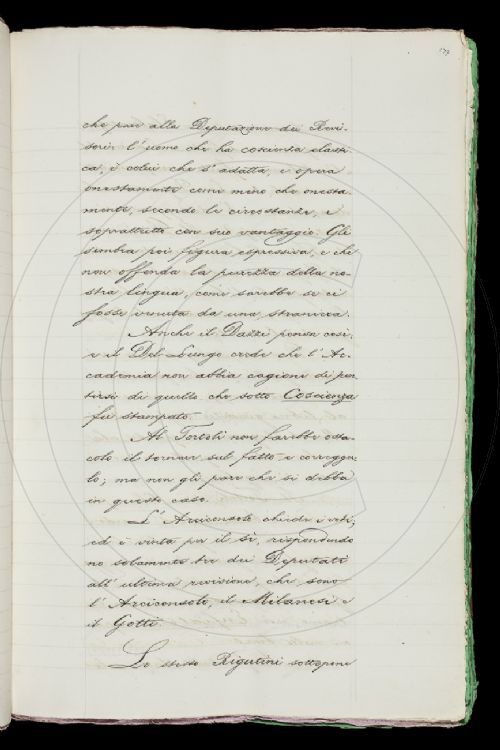 177
che pare alla Deputazione dei Revi-
sori: l'uomo che ha coscienza elasti-
ca, è colui che s'adatta, e opera
onestamente come meno che onesta-
mente, secondo le circostanze, e
soprattutto con suo vantaggio. Gli
sembra poi figura espressiva, e che
non offenda la purezza della no-
stra lingua, come sarebbe se ci
fosse venuta da una straniera.
Anche il Dazzi pensa così:
e il Del Lungo crede che l'Ac-
cademia non abbia cagione di pen
tirsi di quello che sotto Coscienza
fu stampato.
Al Tortoli non farebbe osta-
colo il tornare sul fatto e corregger-
lo; ma non gli pare che si debba
in questo caso.
L'Arciconsolo chiede i voti;
ed è vinta per il sì, rispondendo
no solamente tre dei Deputati
all'ultima revisione, che sono
l'Arciconsolo, il Milanesi e
il Gotti.
Lo stesso Rigutini sottopone